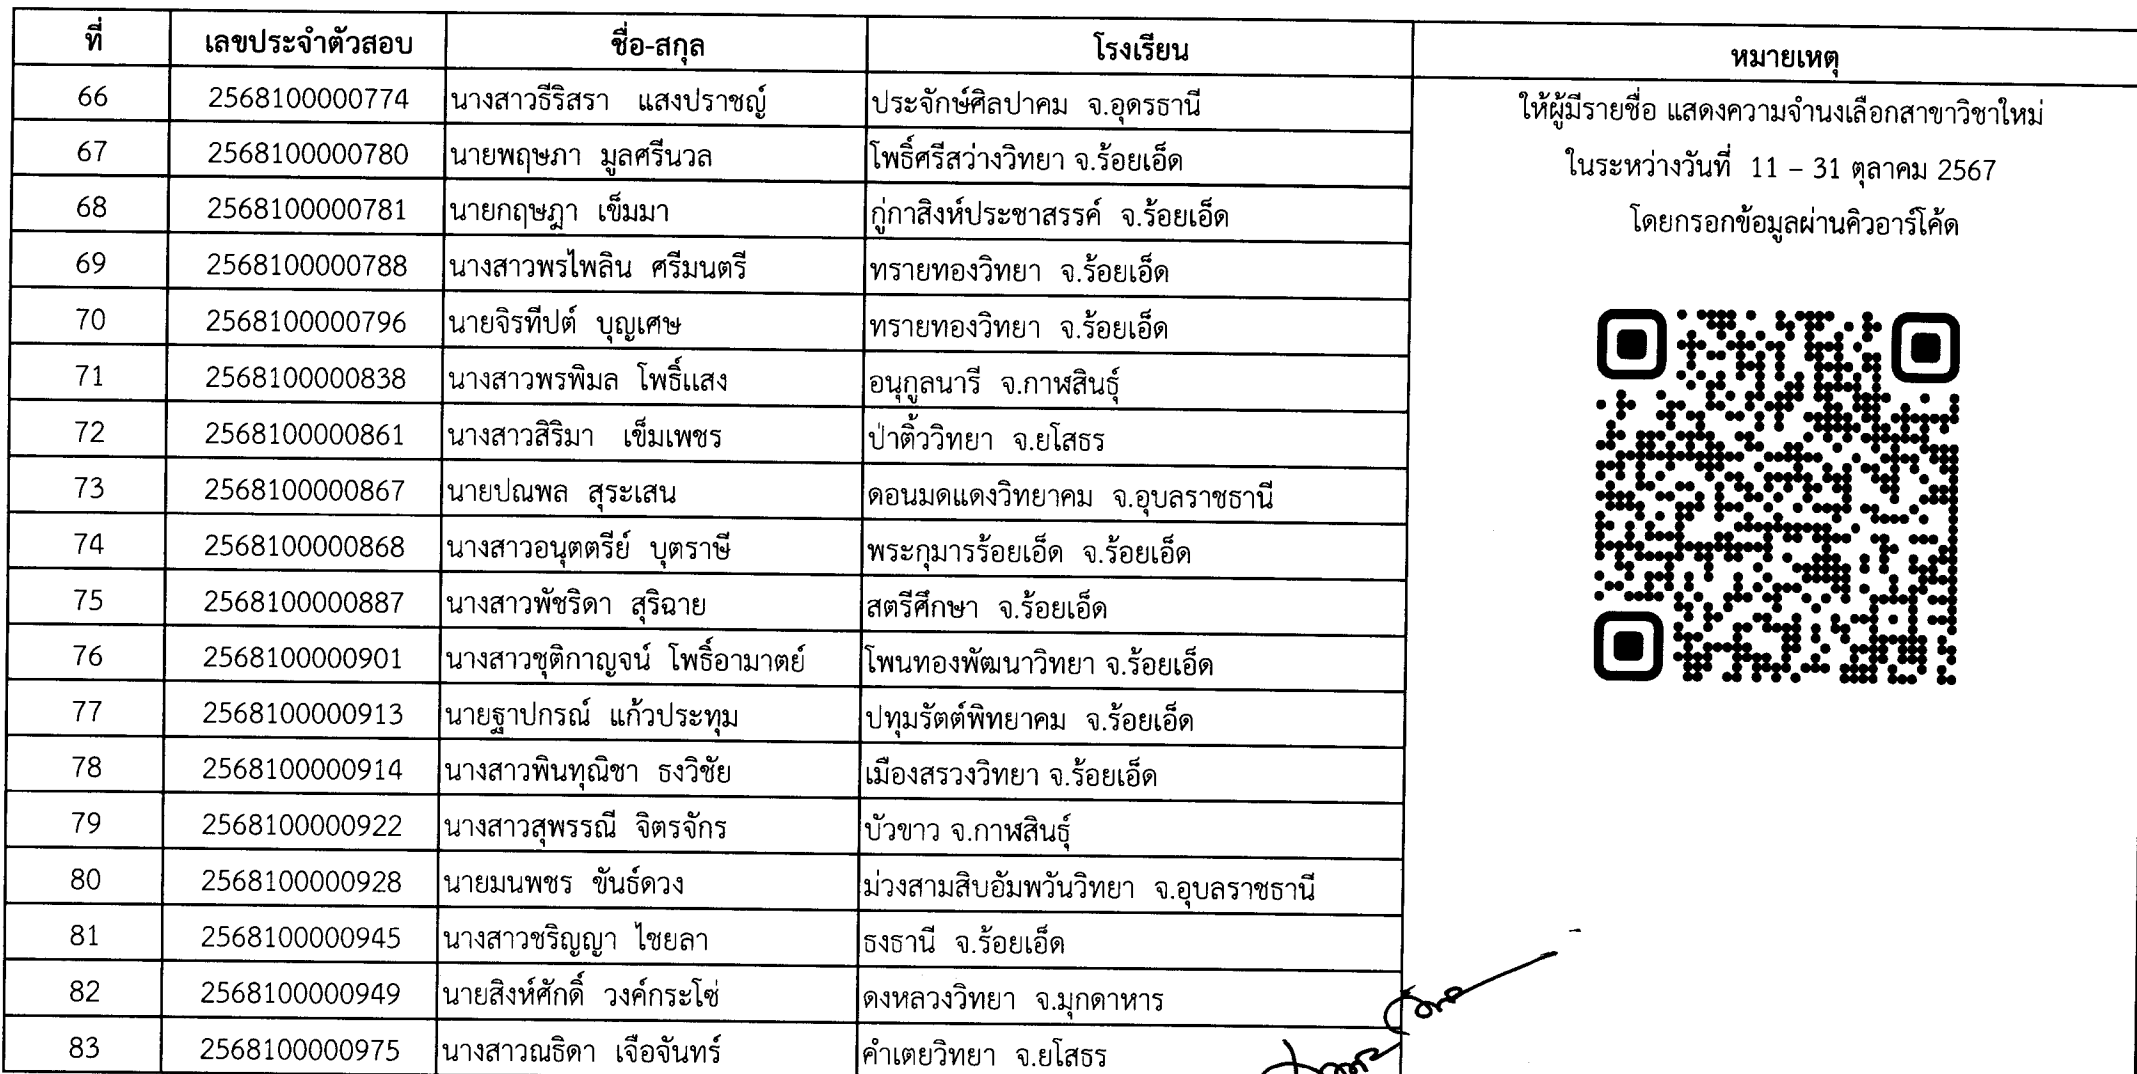 ที่ เลขประจำตัวสอบ ชื่อ-สกุล โรงเรียน หมายเหตุ
66 2568100000774 นางสาวธีริสรา แสงปราชญ์ ประจักษ์ศิลปาคม จ.อุดรธานี ให้ผู้มีรายชื่อ แสดงความจำนงเลือกสาขาวิชาใหม่
67 2568100000780 นายพฤษภา มูลศรีนวล โพธิ์ศรีสว่างวิทยา จ.ร้อยเอ็ด ในระหว่างวันที่ 11 – 31 ตุลาคม 2567
68 2568100000781 นายกฤษฎา เข็มมา กู่กาสิงห์ประชาสรรค์ จ.ร้อยเอ็ด โดยกรอกข้อมูลผ่านคิวอาร์โค้ด
69 2568100000788 นางสาวพรไพลิน ศรีมนตรี ทรายทองวิทยา จ.ร้อยเอ็ด
70 2568100000796 นายจิรทีปต์ บุญเศษ ทรายทองวิทยา จ.ร้อยเอ็ด
71 2568100000838 นางสาวพรพิมล โพธิ์แสง อนุกูลนารี จ.กาฬสินธุ์
72 2568100000861 นางสาวสิริมา เข็มเพชร ป่าติ้ววิทยา จ.ยโสธร
73 2568100000867 นายปณพล สุระเสน ดอนมดแดงวิทยาคม จ.อุบลราชธานี
74 2568100000868 นางสาวอนุตตรีย์ บุตราษี พระกุมารร้อยเอ็ด จ.ร้อยเอ็ด
75 2568100000887 นางสาวพัชริดา สุริฉาย สตรีศึกษา จ.ร้อยเอ็ด
76 2568100000901 นางสาวชุติกาญจน์ โพธิ์อามาตย์ โพนทองพัฒนาวิทยา จ.ร้อยเอ็ด
77 2568100000913 นายฐาปกรณ์ แก้วประทุม ปทุมรัตต์พิทยาคม จ.ร้อยเอ็ด
78 2568100000914 นางสาวพินทุณิชา ธงวิชัย เมืองสรวงวิทยา จ.ร้อยเอ็ด
79 2568100000922 นางสาวสุพรรณี จิตรจักร บัวขาว จ.กาฬสินธุ์
80 2568100000928 นายมนพชร ขันธ์ดวง ม่วงสามสิบอัมพวันวิทยา จ.อุบลราชธานี
81 2568100000945 นางสาวชริญญา ไชยลา ธงธานี จ.ร้อยเอ็ด
82 2568100000949 นายสิงห์ศักดิ์ วงค์กระโซ่ ดงหลวงวิทยา จ.มุกดาหาร
83 2568100000975 นางสาวณธิดา เจือจันทร์ คำเตยวิทยา จ.ยโสธร